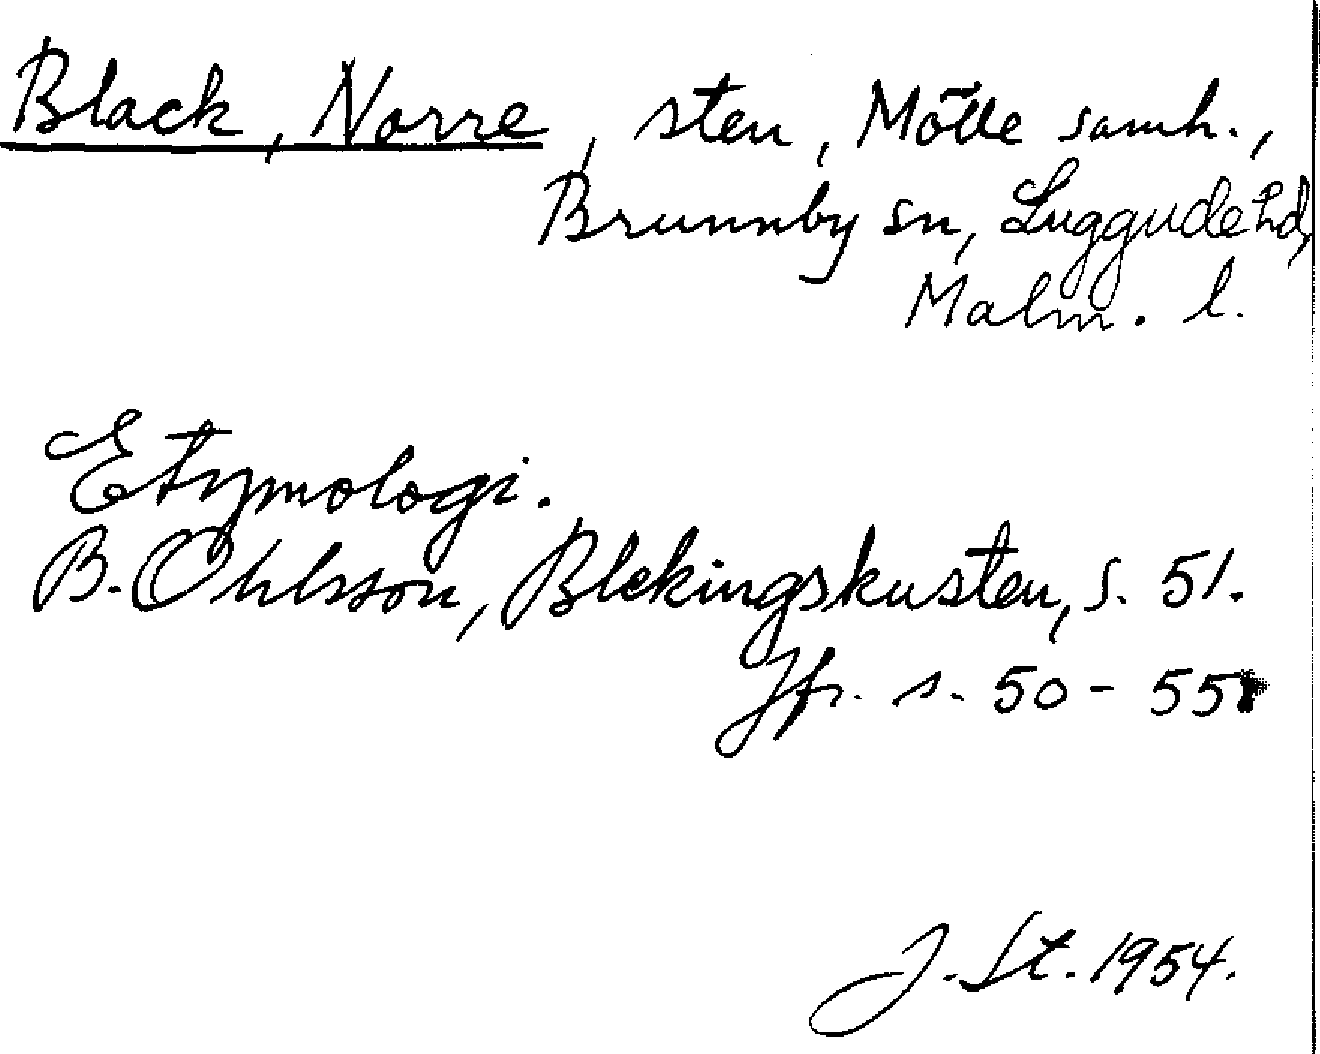 Black, Norre, sten, Mölle samh.,
Brunnby sn, Luggude hd,
Malm. l.
Etymologi.
B. Ohlsson, Blekingskusten, s. 51.
Jfr. s. 50 - 55
J. St. 1954.